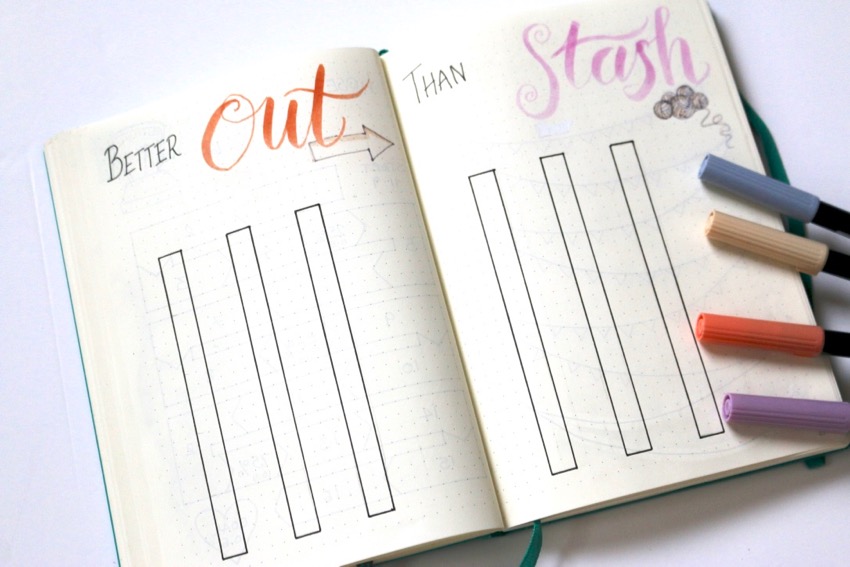 BETTER Out
THAN Stash